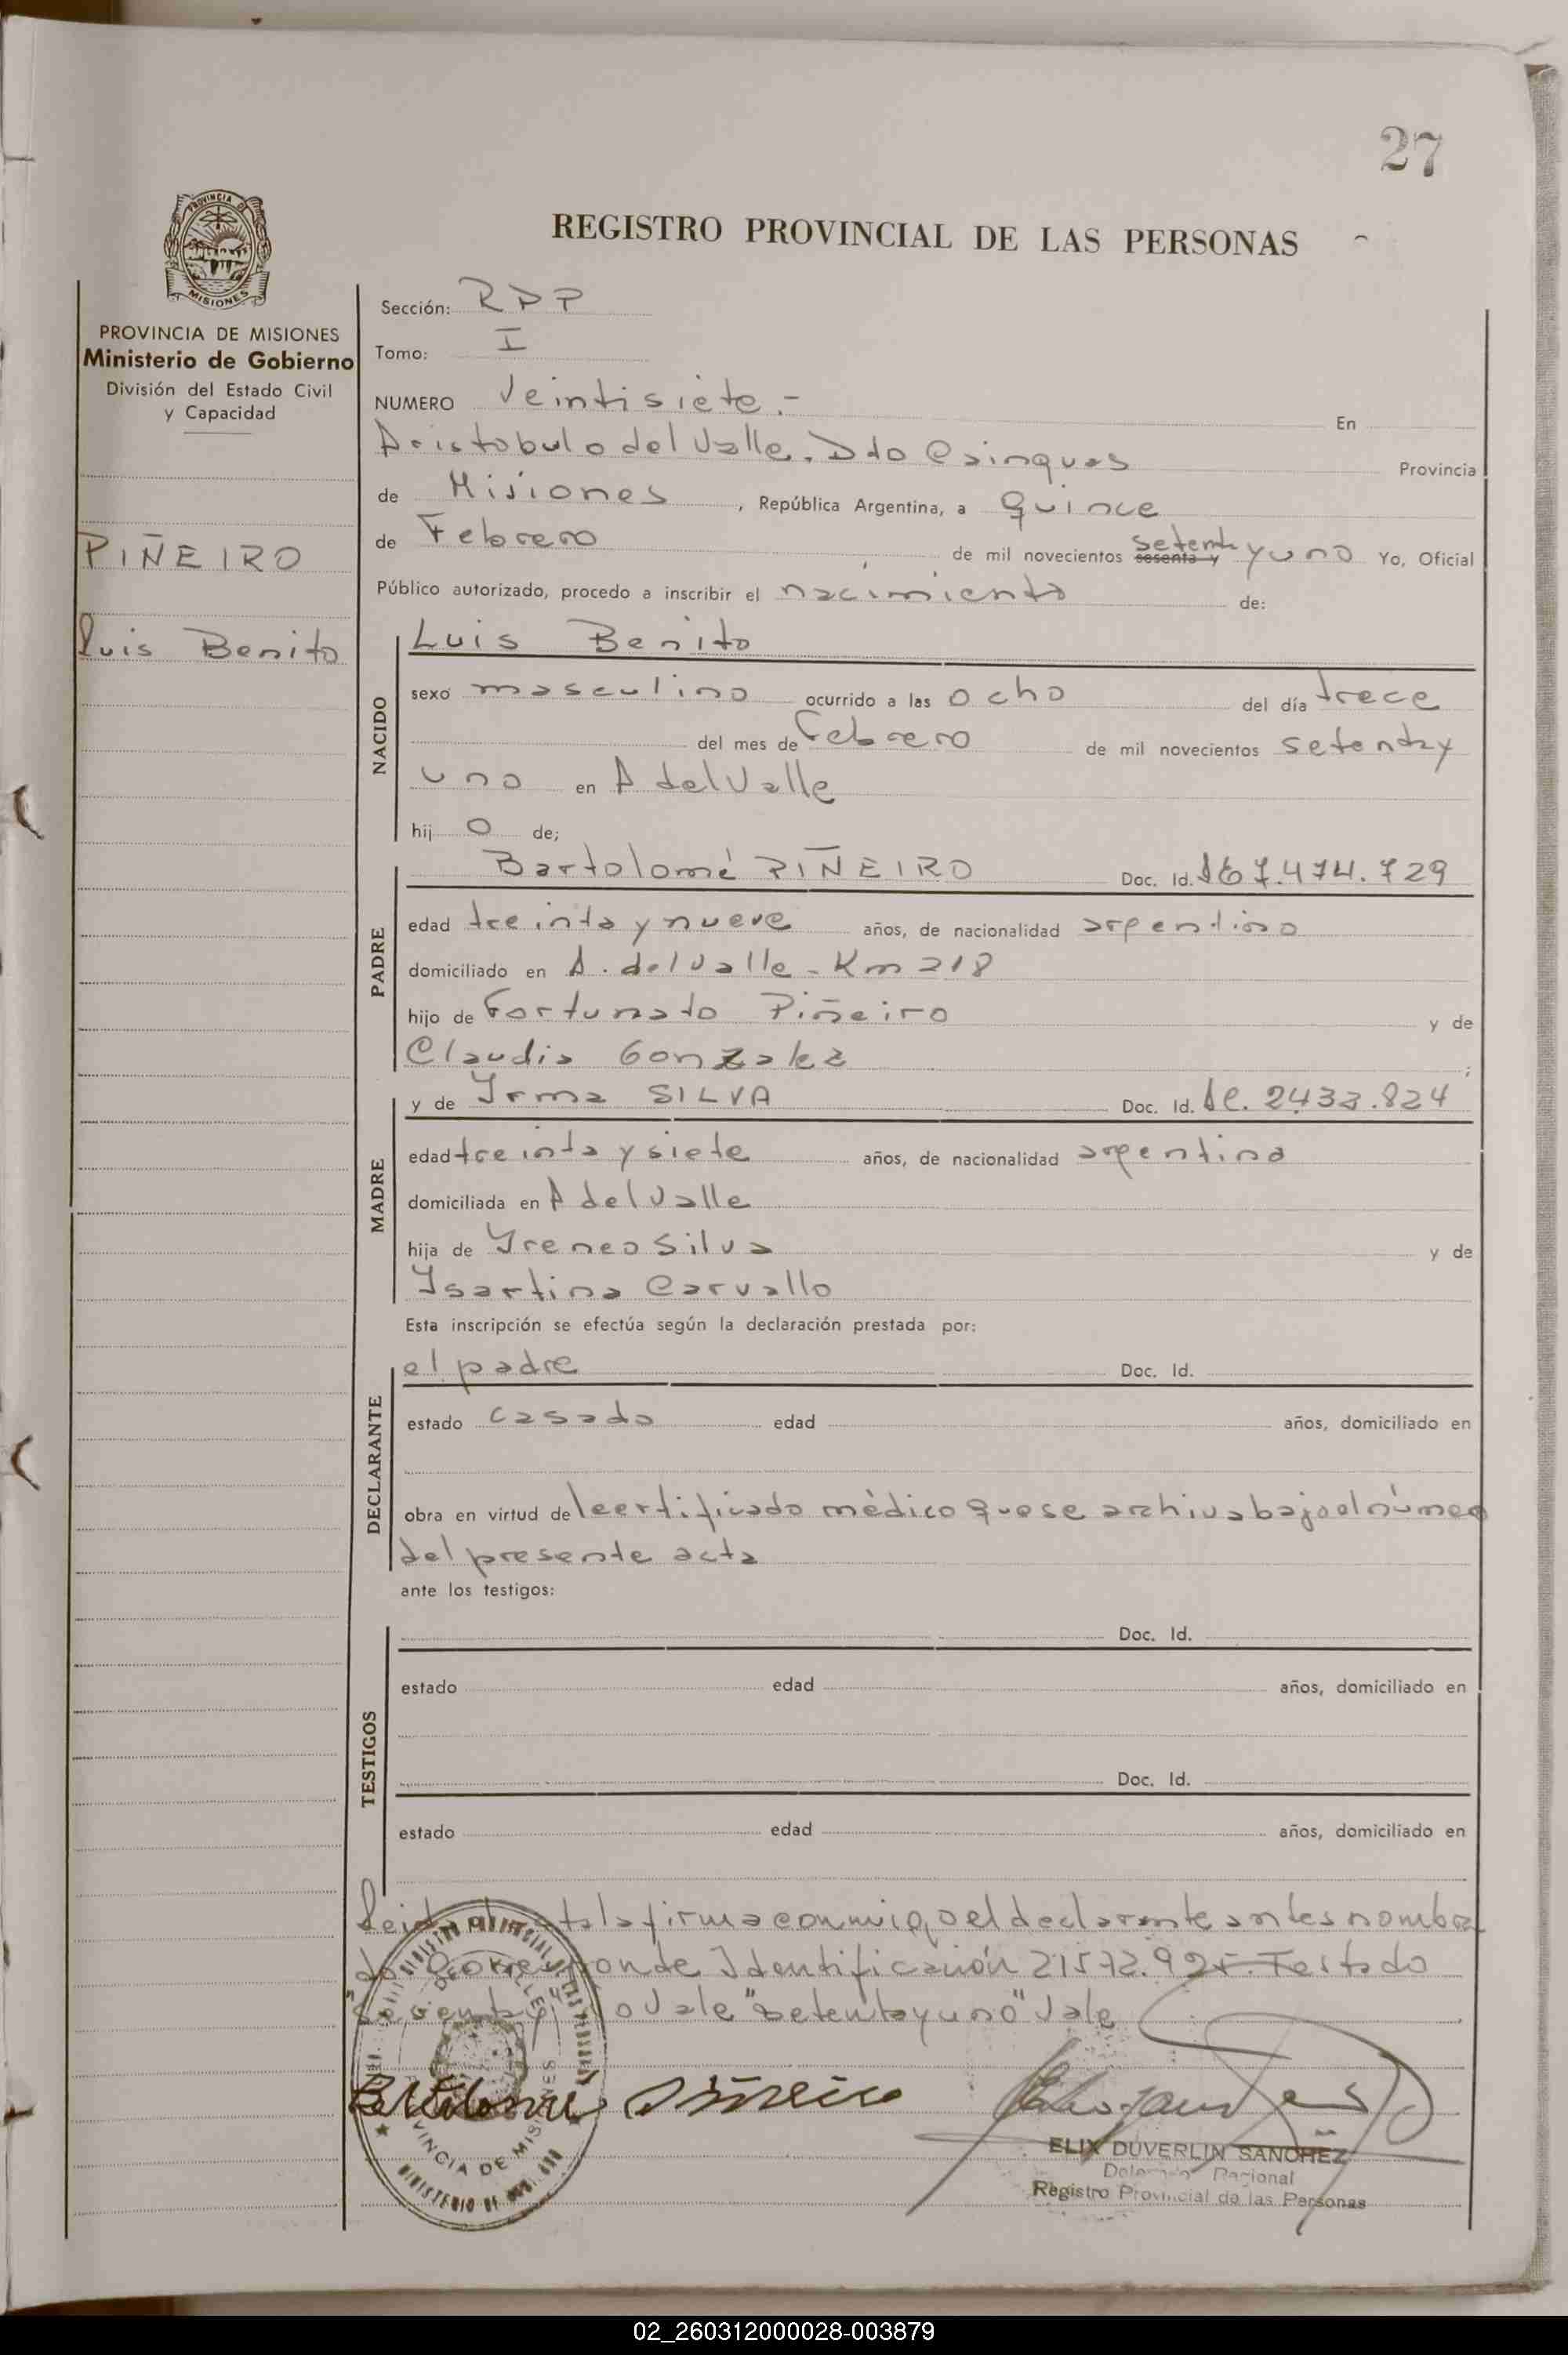 27
PROVINCIA DE MISIONES
REGISTRO PROVINCIAL DE LAS PERSONAS
PROVINCIA DE MISIONES
Ministerio de Gobierno
División del Estado Civil
y Capacidad
PIÑEIRO
Luis Benito
Sección: RPP
Tomo: I
NUMERO Veintisiete.- En
Aristobulo del Valle. Dto Cainguas Provincia
de Misiones, República Argentina, a quince
de Febrero de mil novecientos sesenta y setenta y uno Yo, Oficial
Público autorizado, procedo a inscribir el nacimiento de:
NACIDO
Luis Benito
sexo masculino ocurrido a las ocho del día trece
del mes de Febrero de mil novecientos setenta y
uno en A del Valle
hij o de;
PADRE
Bartolomé PIÑEIRO Doc. Id. 7.474.729
edad treinta y nueve años, de nacionalidad argentino
domiciliado en A. del Valle - Km 218
hijo de Fortunato Piñeiro y de
Claudia Gonzalez ;
MADRE
y de Yrma SILVA Doc. Id.
edad treinta y siete años, de nacionalidad argentina
domiciliada en A del Valle
hija de Yreneo Silva y de
Ysartina Carvallo
Esta inscripción se efectúa según la declaración prestada por:
DECLARANTE
el padre Doc. Id.
estado casado edad años, domiciliado en
obra en virtud del certificado médico que se archiva bajo el número
del presente acta
ante los testigos:
TESTIGOS
Doc. Id.
estado edad años, domiciliado en
Doc. Id.
estado edad años, domiciliado en
Leida el acta la firma conmigo el declarante antes nombra
do. Corresponde Identificación 21572.925. Testado
"sesenta y" no Vale "setenta y uno" Vale
Bartolome Piñeiro
ELIX DUVERLIN SANCHEZ
Delegado Regional
Registro Provincial de las Personas
02_260312000028-003879